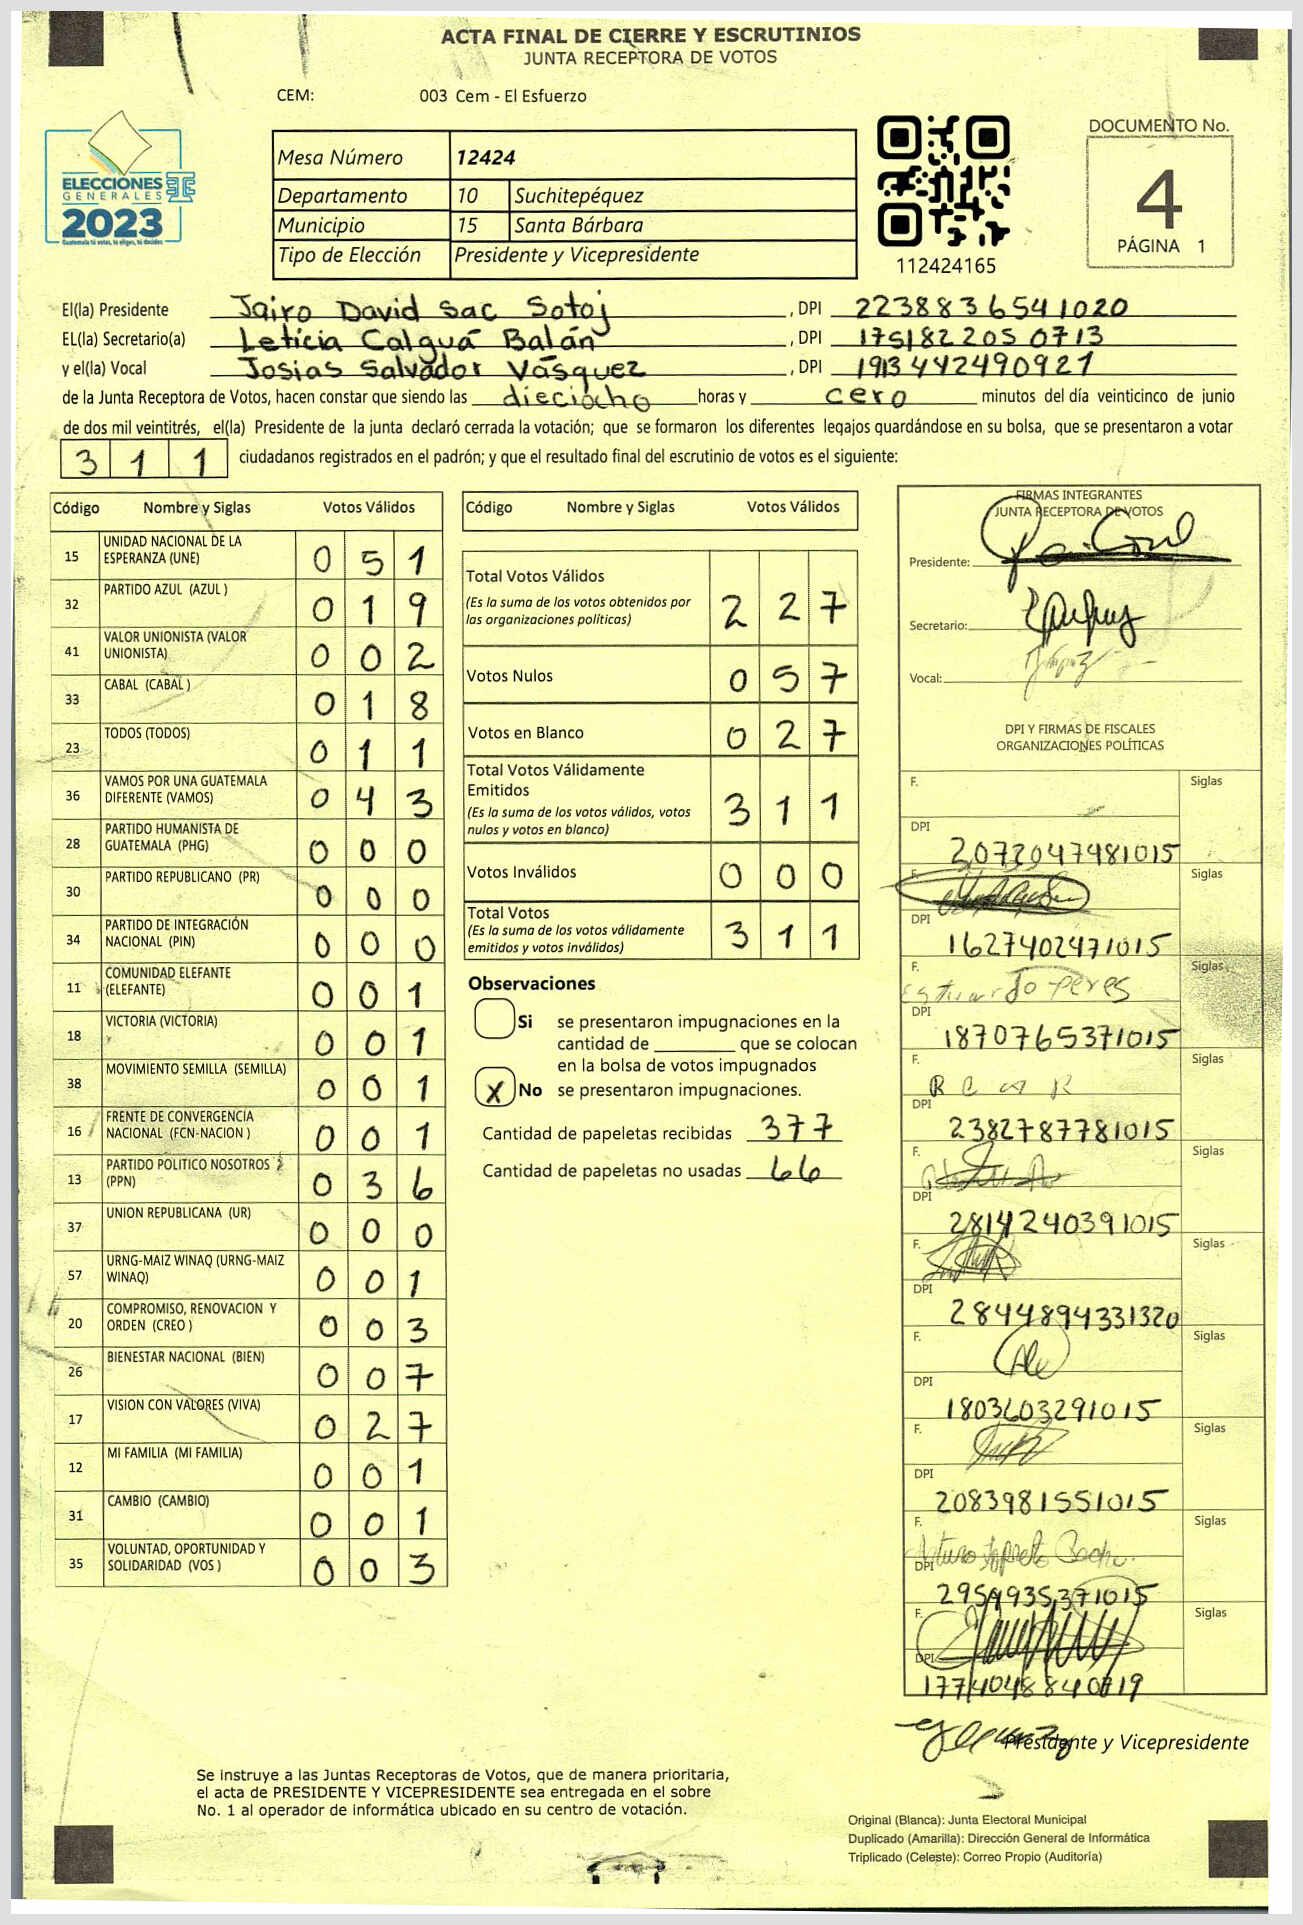 ACTA FINAL DE CIERRE Y ESCRUTINIOS
JUNTA RECEPTORA DE VOTOS
CEM: 003 Cem - El Esfuerzo
ELECCIONES
GENERALES
2023
Guatemala tú votas, tú eliges, tú decides
Mesa Número 12424
Departamento 10 Suchitepéquez
Municipio 15 Santa Bárbara
Tipo de Elección Presidente y Vicepresidente
112424165
DOCUMENTO No.
4
PÁGINA 1
El(la) Presidente Jairo David Sac Sotoj, DPI 2238836541020
EL(la) Secretario(a) Leticia Calguá Balán, DPI 1751822050713
y el(la) Vocal Josias Salvador Vásquez, DPI 1913442490921
de la Junta Receptora de Votos, hacen constar que siendo las dieciocho horas y cero minutos del día veinticinco de junio
de dos mil veintitrés, el(la) Presidente de la junta declaró cerrada la votación; que se formaron los diferentes legajos guardándose en su bolsa, que se presentaron a votar
311 ciudadanos registrados en el padrón; y que el resultado final del escrutinio de votos es el siguiente:
Código Nombre y Siglas Votos Válidos
15 UNIDAD NACIONAL DE LA ESPERANZA (UNE) 051
32 PARTIDO AZUL (AZUL ) 019
41 VALOR UNIONISTA (VALOR UNIONISTA) 002
33 CABAL (CABAL ) 018
23 TODOS (TODOS) 011
36 VAMOS POR UNA GUATEMALA DIFERENTE (VAMOS) 043
28 PARTIDO HUMANISTA DE GUATEMALA (PHG) 000
30 PARTIDO REPUBLICANO (PR) 000
34 PARTIDO DE INTEGRACIÓN NACIONAL (PIN) 000
11 COMUNIDAD ELEFANTE (ELEFANTE) 001
18 VICTORIA (VICTORIA) 001
38 MOVIMIENTO SEMILLA (SEMILLA) 001
16 FRENTE DE CONVERGENCIA NACIONAL (FCN-NACION ) 001
13 PARTIDO POLITICO NOSOTROS (PPN) 036
37 UNION REPUBLICANA (UR) 000
57 URNG-MAIZ WINAQ (URNG-MAIZ WINAQ) 001
20 COMPROMISO, RENOVACION Y ORDEN (CREO ) 003
26 BIENESTAR NACIONAL (BIEN) 007
17 VISION CON VALORES (VIVA) 027
12 MI FAMILIA (MI FAMILIA) 001
31 CAMBIO (CAMBIO) 001
35 VOLUNTAD, OPORTUNIDAD Y SOLIDARIDAD (VOS ) 003
Código Nombre y Siglas Votos Válidos
Total Votos Válidos 227
(Es la suma de los votos obtenidos por
las organizaciones políticas)
Votos Nulos 057
Votos en Blanco 027
Total Votos Válidamente
Emitidos 311
(Es la suma de los votos válidos, votos
nulos y votos en blanco)
Votos Inválidos 000
Total Votos 311
(Es la suma de los votos válidamente
emitidos y votos inválidos)
Observaciones
Si se presentaron impugnaciones en la
cantidad de ________ que se colocan
en la bolsa de votos impugnados
X No se presentaron impugnaciones.
Cantidad de papeletas recibidas 377
Cantidad de papeletas no usadas 66
FIRMAS INTEGRANTES
JUNTA RECEPTORA DE VOTOS
Presidente:
Secretario:
Vocal:
DPI Y FIRMAS DE FISCALES
ORGANIZACIONES POLÍTICAS
F. Siglas
DPI 2072047481015
F. Siglas
DPI 1627402471015
F. Estuardo Peres Siglas
DPI 1870765371015
F. Siglas
DPI 2382787781015
F. Siglas
DPI 2814240391015
F. Siglas
DPI 2844894331320
F. Siglas
DPI 1803603291015
F. Siglas
DPI 2083981551015
F. Arturo Siglas
DPI 2959935371015
F. Siglas
DPI 1774048840719
Presidente y Vicepresidente
Se instruye a las Juntas Receptoras de Votos, que de manera prioritaria,
el acta de PRESIDENTE Y VICEPRESIDENTE sea entregada en el sobre
No. 1 al operador de informática ubicado en su centro de votación.
Original (Blanca): Junta Electoral Municipal
Duplicado (Amarilla): Dirección General de Informática
Triplicado (Celeste): Correo Propio (Auditoría)